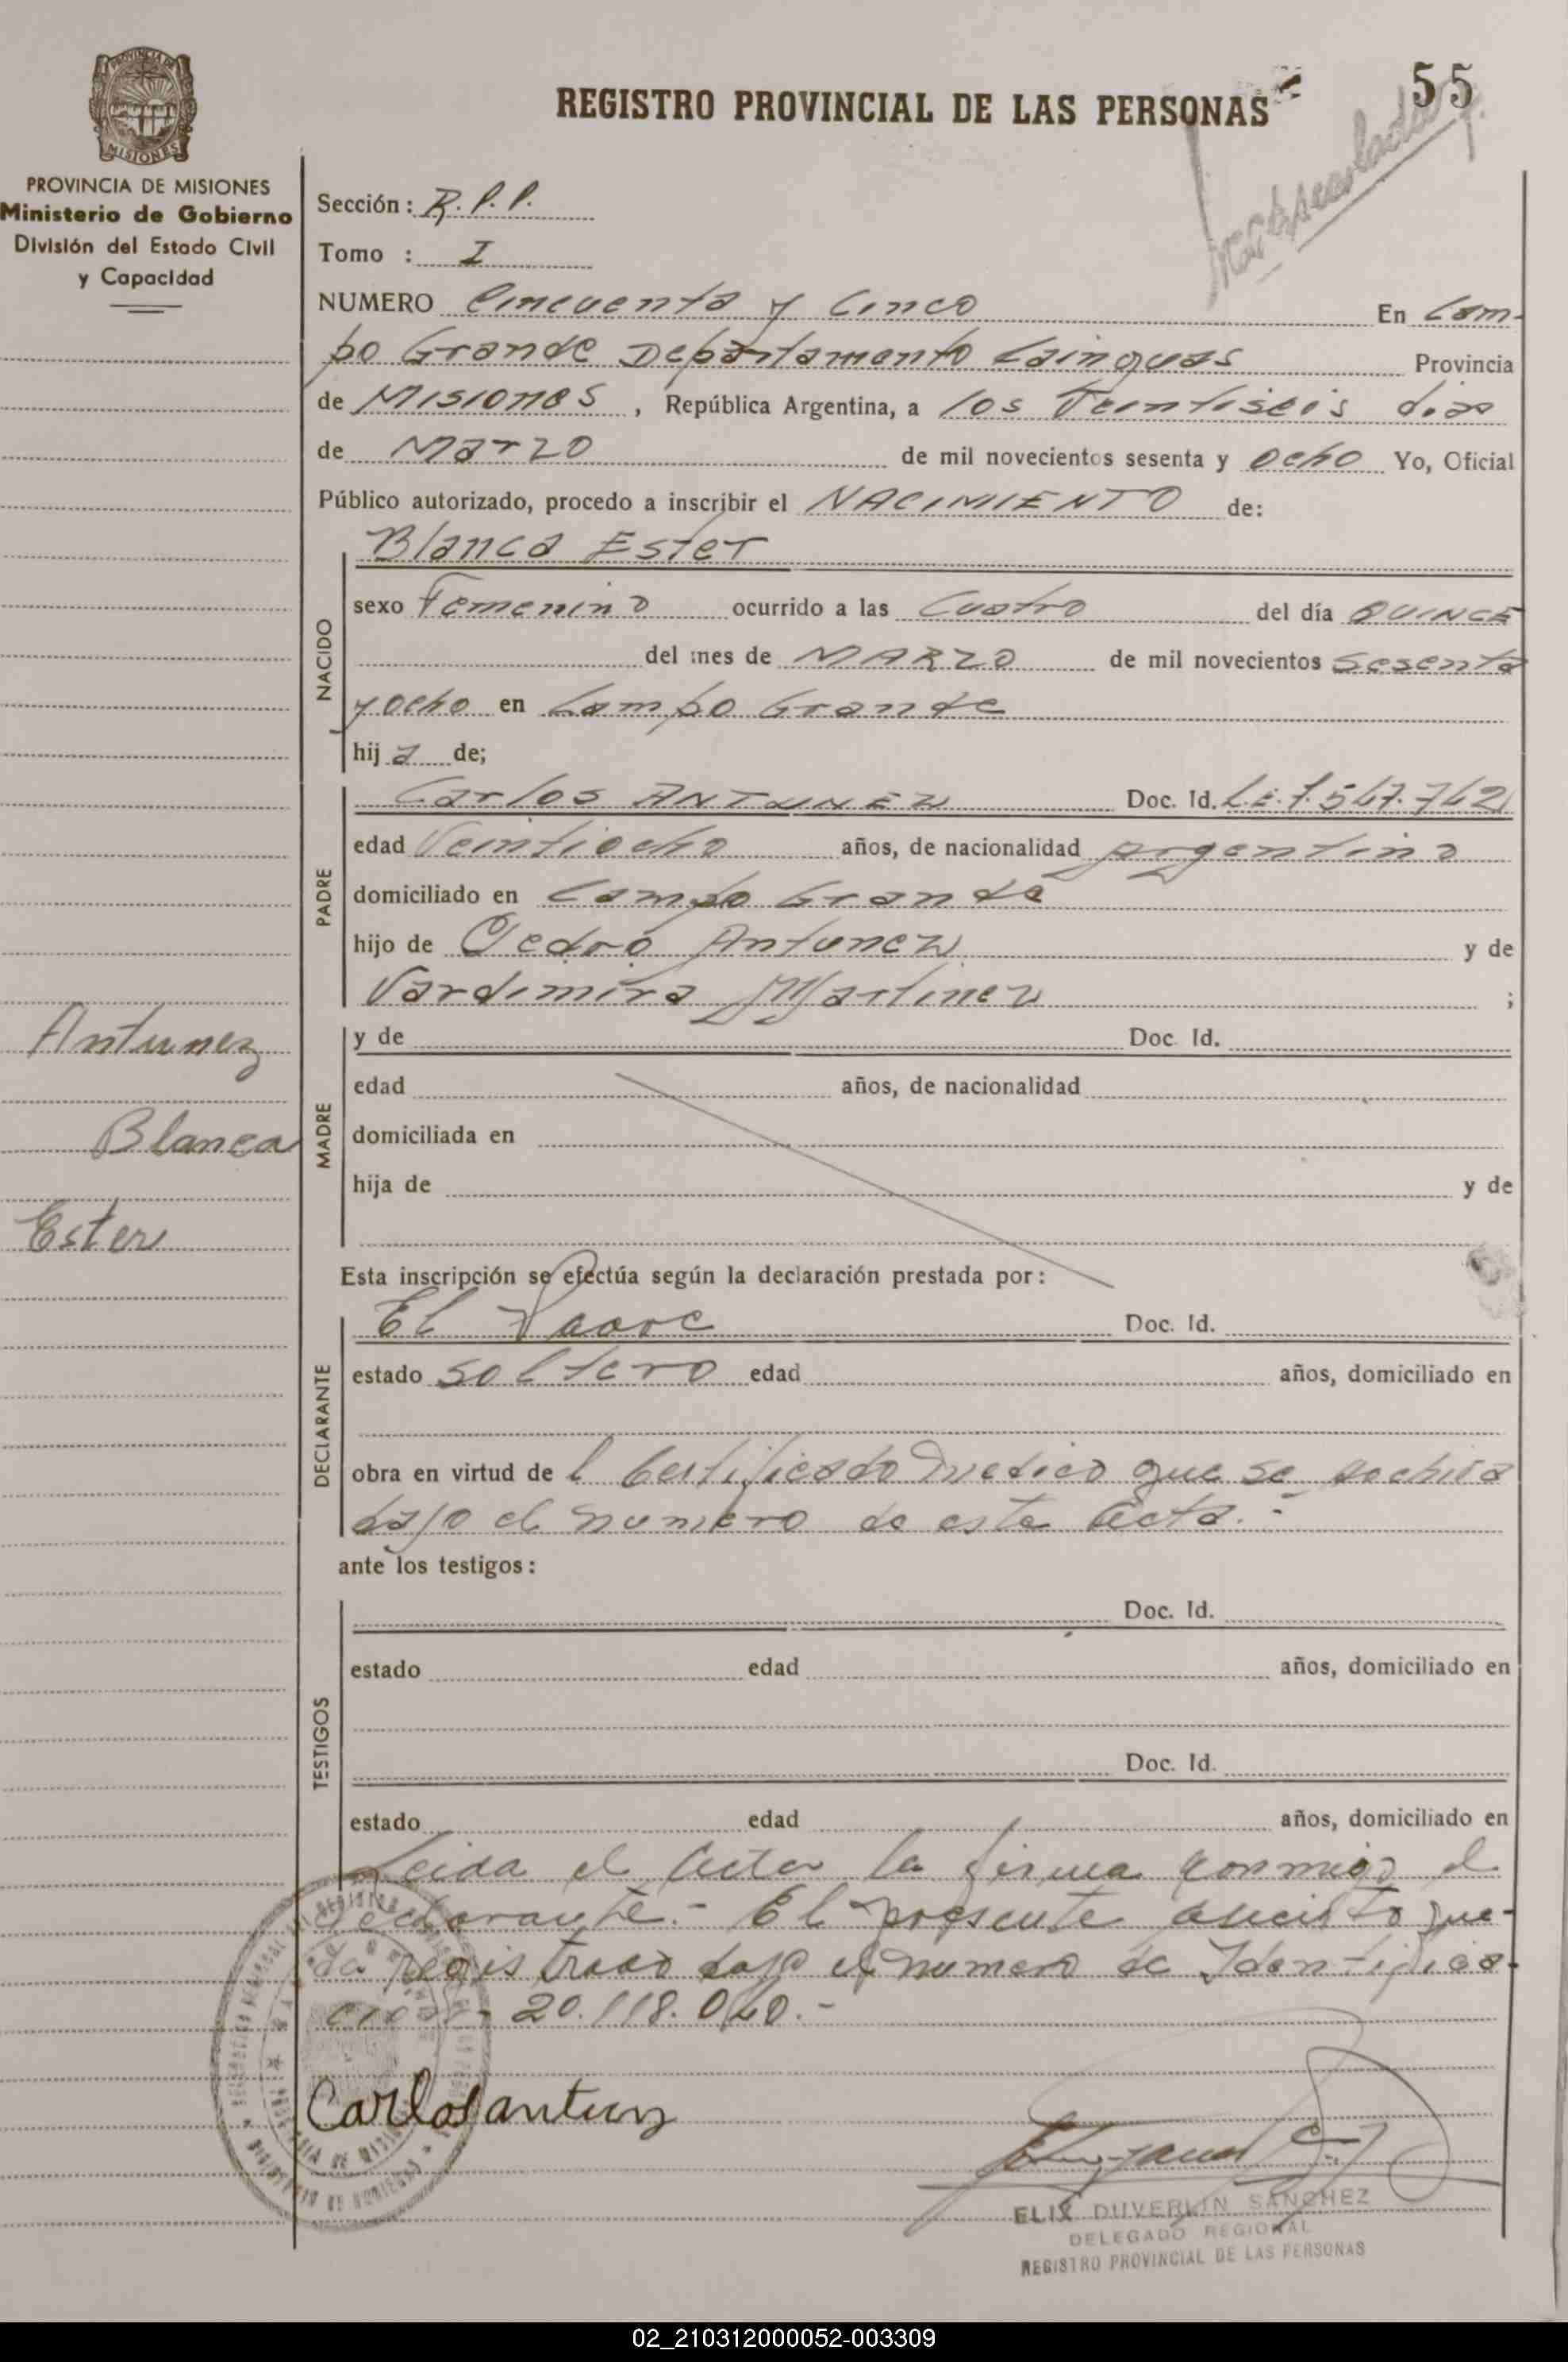 55
REGISTRO PROVINCIAL DE LAS PERSONAS
MISIONES
PROVINCIA DE MISIONES
Ministerio de Gobierno
División del Estado Civil
y Capacidad
Sección: R.P.P.
Tomo : I
NUMERO Cincuenta y Cinco En Cam-
po Grande Departamento Cainguas Provincia
de Misiones, República Argentina, a los Veintiseis dias
de Marzo de mil novecientos sesenta y ocho Yo, Oficial
Público autorizado, procedo a inscribir el NACIMIENTO de:
NACIDO
Blanca Ester
sexo Femenino ocurrido a las Cuatro del día QUINCE
del mes de MARZO de mil novecientos Sesenta
y ocho en Campo Grande
hija de;
PADRE
Carlos ANTUNEZ Doc. Id. L.E. 7.567.762
edad Veintiocho años, de nacionalidad argentino
domiciliado en Campo Grande
hijo de Pedro Antunez y de
Vardimira Martinez ;
Antunez
Blanca
Ester
MADRE
y de Doc. Id.
edad años, de nacionalidad
domiciliada en
hija de y de
Esta inscripción se efectúa según la declaración prestada por:
DECLARANTE
El Padre Doc. Id.
estado soltero edad años, domiciliado en
obra en virtud del Certificado Medico que se archiva
bajo el numero de este Acta.-
ante los testigos:
TESTIGOS
Doc. Id.
estado edad años, domiciliado en
Doc. Id.
estado edad años, domiciliado en
Leida el Acta la firma conmigo el
declarante.- El presente asiento que-
da registrado bajo el numero de Identifica-
cion- 20.118.040.-
Carlos antunz
ELIX DUVERLIN SANCHEZ
DELEGADO REGIONAL
REGISTRO PROVINCIAL DE LAS PERSONAS
02_210312000052-003309